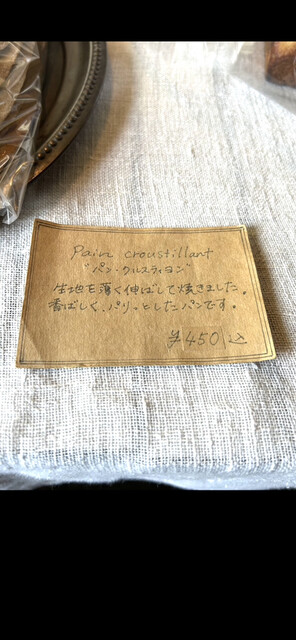 Pain croustillant
"パン・クルスティヨン"
生地を薄く伸ばして焼きました。
香ばしく、パリッとしたパンです。
¥450込